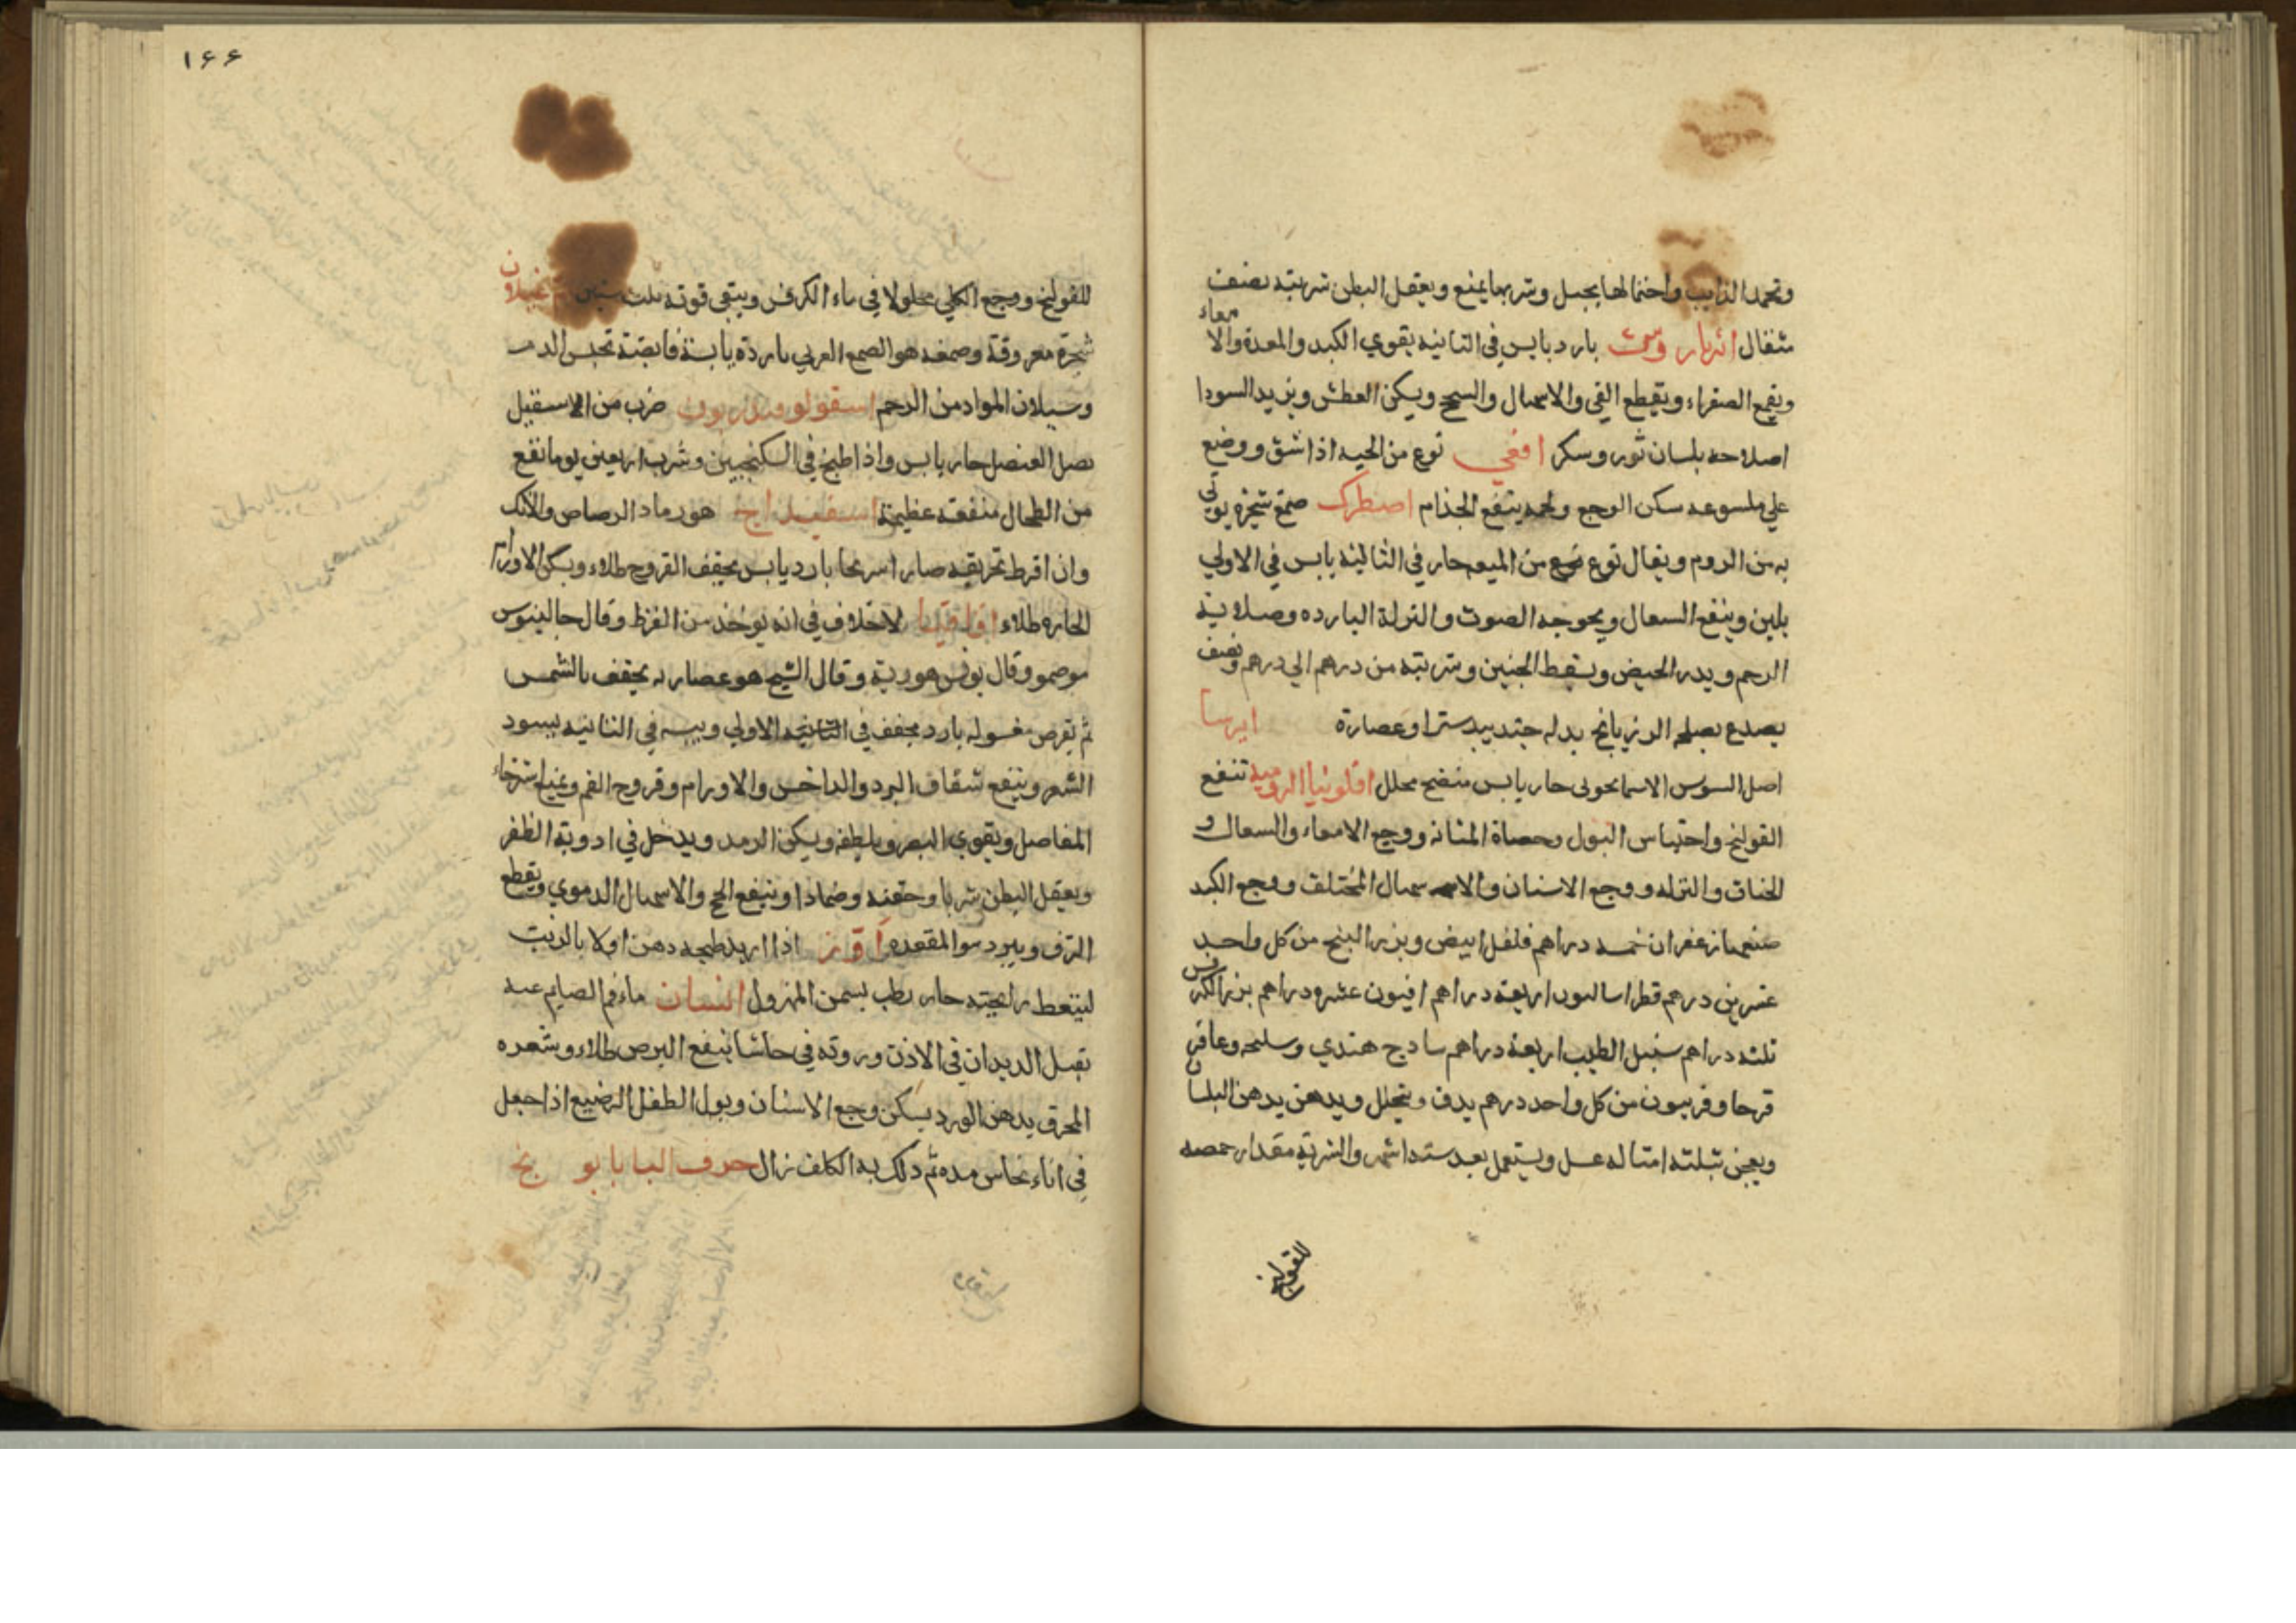 وتجمد الذايب واحتمالها يحبل وشربها يمنع ويعقل البطن شربته نصف
مثقال انبربارىس بارد يابس في الثانيه يقوي الكبد والمعدة والا
معاء
ويقمع الصفراء ويقطع القي والاسهال والسحج ويسكن العطش ويزيد السودا
اصلاحه بلسان ثور وسكر افعي نوع من الحيه اذا شق ووضع
علي ملسوعه سكن الوجع ولحمه ينفع الجذام اصطرك صمغ شجره يوتي
به من الروم ويقال نوع من الميعه حار في الثالثه يابس في الاولي
يلين وينفع السعال وبحوحه الصوت والنزلة البارده وصلابة
الرحم ويدر الحيض ويسقط الجنين وشربته من درهم الي درهم ونصف
يصدع يصلحه الرازيانج بدله جندبيدستر او عصارة ايرسا
اصل السوس الاسمانجوني حار يابس منضج محلل افلونيا الروميه تنفع
القولنج واحتباس البول وحصاة المثانه ووجع الامعاء والسعال و
الخناق والنزله ووجع الاسنان والاسهال المختلف ووجع الكبد
صنعتها زعفران خمسه دراهم فلفل ابيض وبزر البنج من كل واحد
عشرين درهم قطراساليون اربعة دراهم افيون عشره دراهم بزر الكرفس
ثلثه دراهم سنبل الطيب اربعة دراهم سادج هندي وسليخه وعاقر
قرحا وفربيون من كل واحد درهم يدق وينخل ويدهن بدهن البلسان
ويعجن بثلثه امثاله عسل ويستعمل بعد ستة اشهر والشربة مقدار حمصه
للقولنج
١٤٤
للقولنج ووجع الكلي محلولا في ماء الكرفس ويبقي قوته ثلث سنين ام غيلان
شجرة معروفة وصمغه هو الصمغ العربي باردة يابسة قابضة تحبس الدم
وسيلان المواد من الرحم اسقولوفندريون ضرب من الاسقيل
بصل العنصل حار يابس واذا طبخ في السكنجبين وشرب اربعين يوما نفع
من الطحال منفعة عظيمة اسفيداج هو رماد الرصاص والآنك
وان افرط تحريقه صار اسرنجا بارد يابس يجفف القروح طلاء ويسكن الاورام
الحاره طلاء اقاقيا لاخلاف في انه يوخذ من القرظ وقال جالينوس
هو صمغ وقال بولس هو ربه وقال الشيخ هو عصاره يجفف بالشمس
ثم يقرص مغسوله بارد مجفف في الثانيه الاولي ويبسه في الثانيه يسود
الشعر وينفع شقاق البرد والداخس والاورام وقروح الفم ويمنع استرخاء
المفاصل ويقوي البصر ويلطفه ويسكن الرمد ويدخل في ادوية الظفر
ويعقل البطن شربا وحقنه وضمادا وينفع السحج والاسهال الدموي ويقطع
النزف ويبرد سوا المقعده اوز اذا اريد طبخه دهن اولا بالزيت
لينقطع رايحته حار رطب يسمن المهزول انسان ماء فم الصايم عنه
يقتل الديدان في الاذن وروثه في حاشا ينفع البرص طلاء وشعره
المحرق بدهن الورد يسكن وجع الاسنان وبول الطفل الرضيع اذا جعل
في اناء نحاس مده ثم دلك به الكلف زال حرف البا بابونج